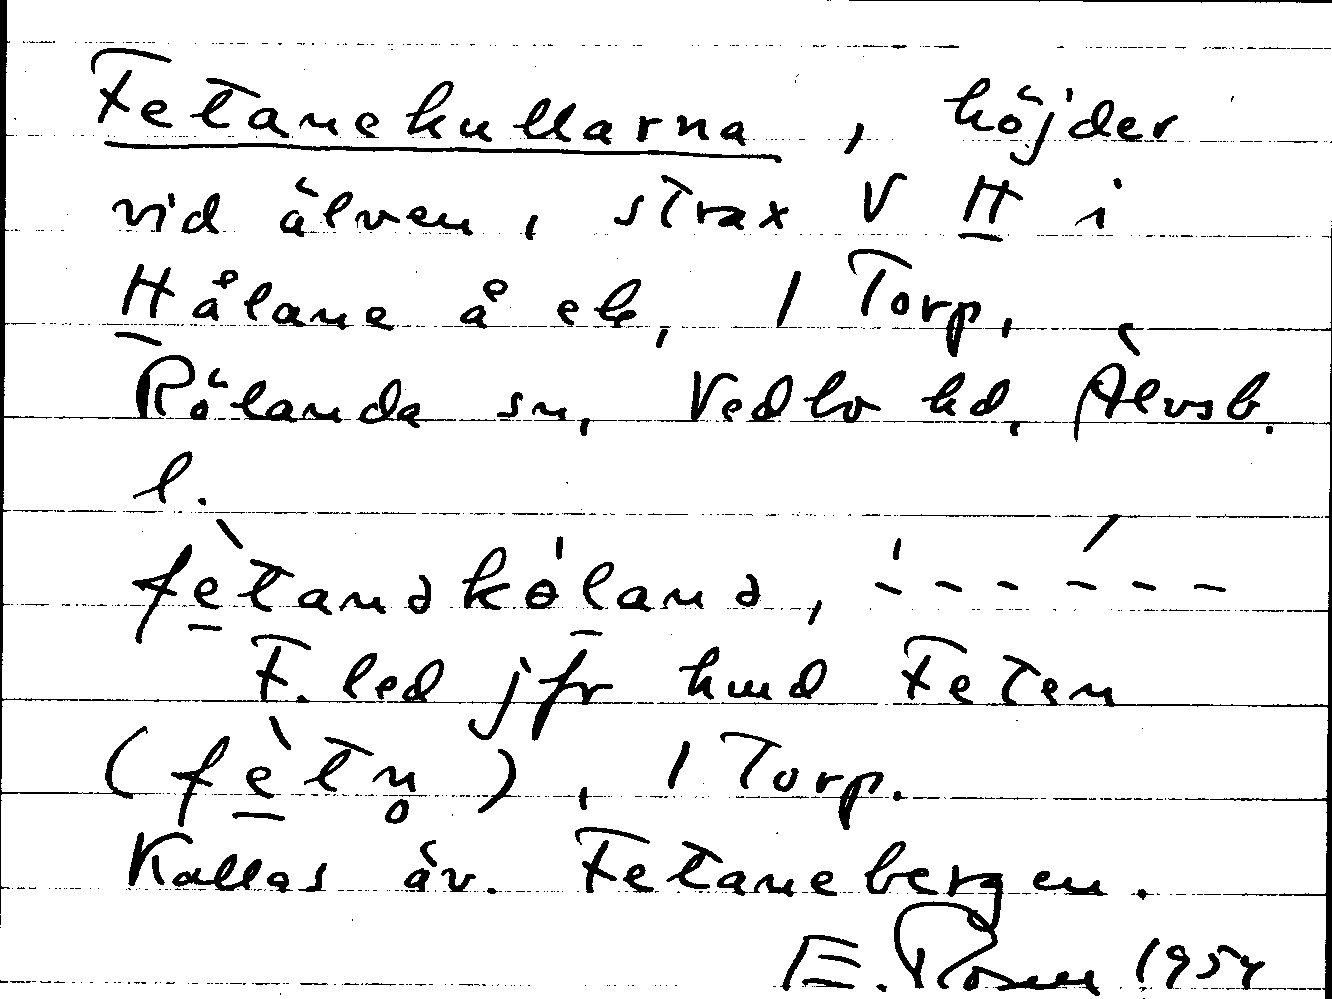 Fetanekullarna, höjder
vid älven, strax V H i
Hålane å ek, 1 Torp,
Rölanda sn, Vedbo hd, Älvsb.
l.
fètanəkɵ́lanə, '------
F.led jfr hmd Feten
(fètn̥), 1 Torp.
Kallas äv. Fetanebergen.
E. Rosen 1954